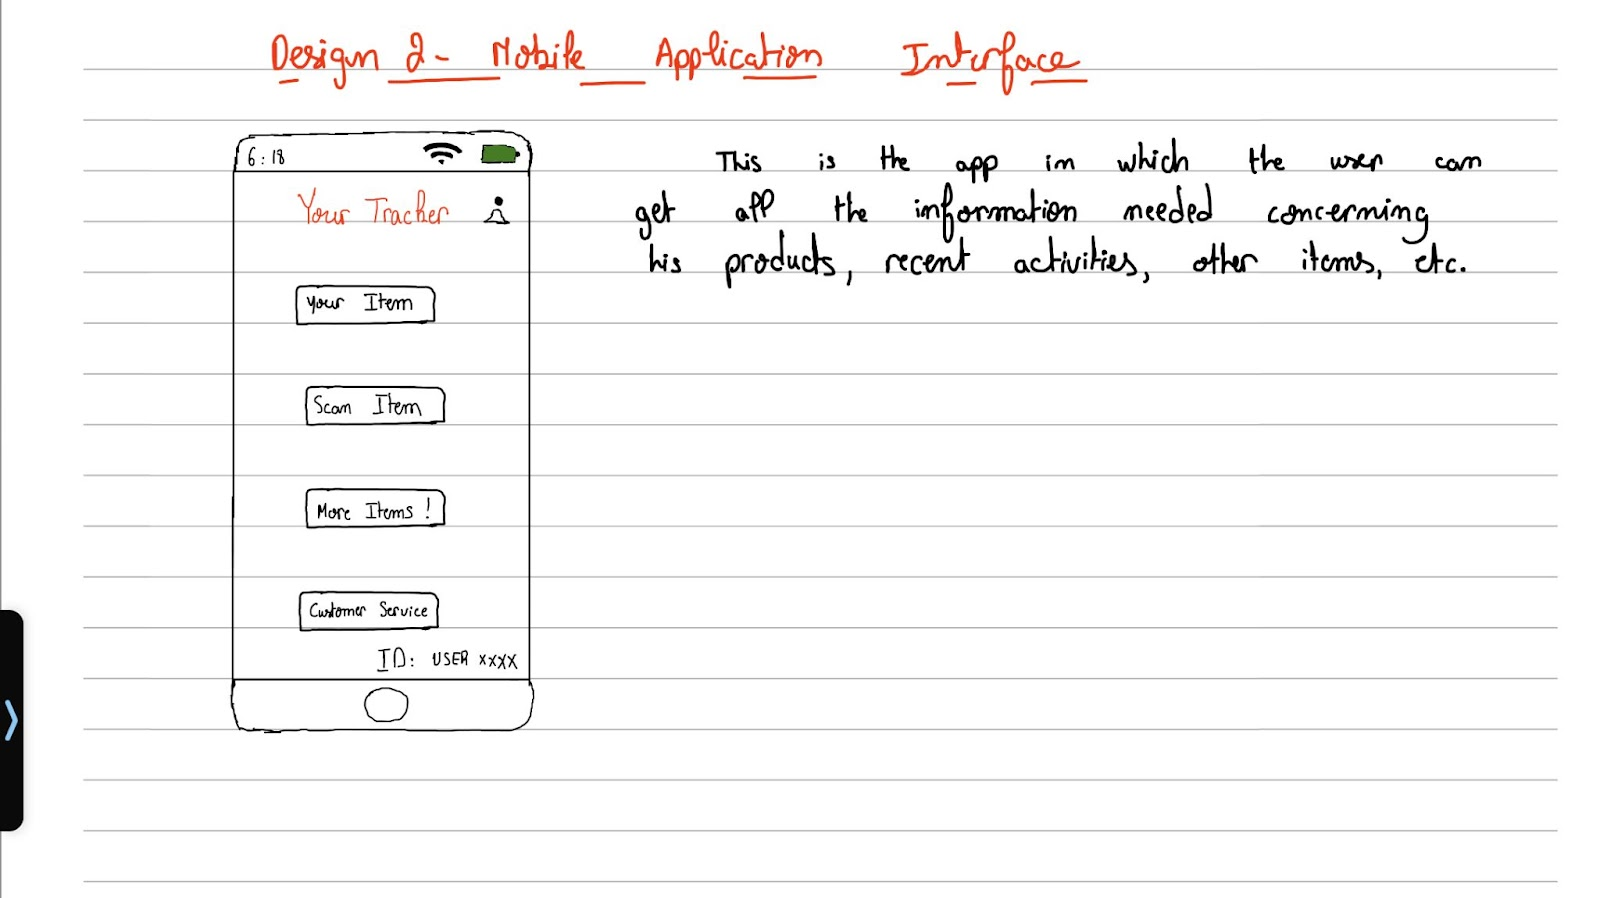 Design 2- Mobile Application Interface
6:18
Your Tracker
Your Item
Scan Item
More Items !
Customer Service
ID: USER XXXX
This is the app in which the user can
get all the information needed concerning
his products, recent activities, other items, etc.